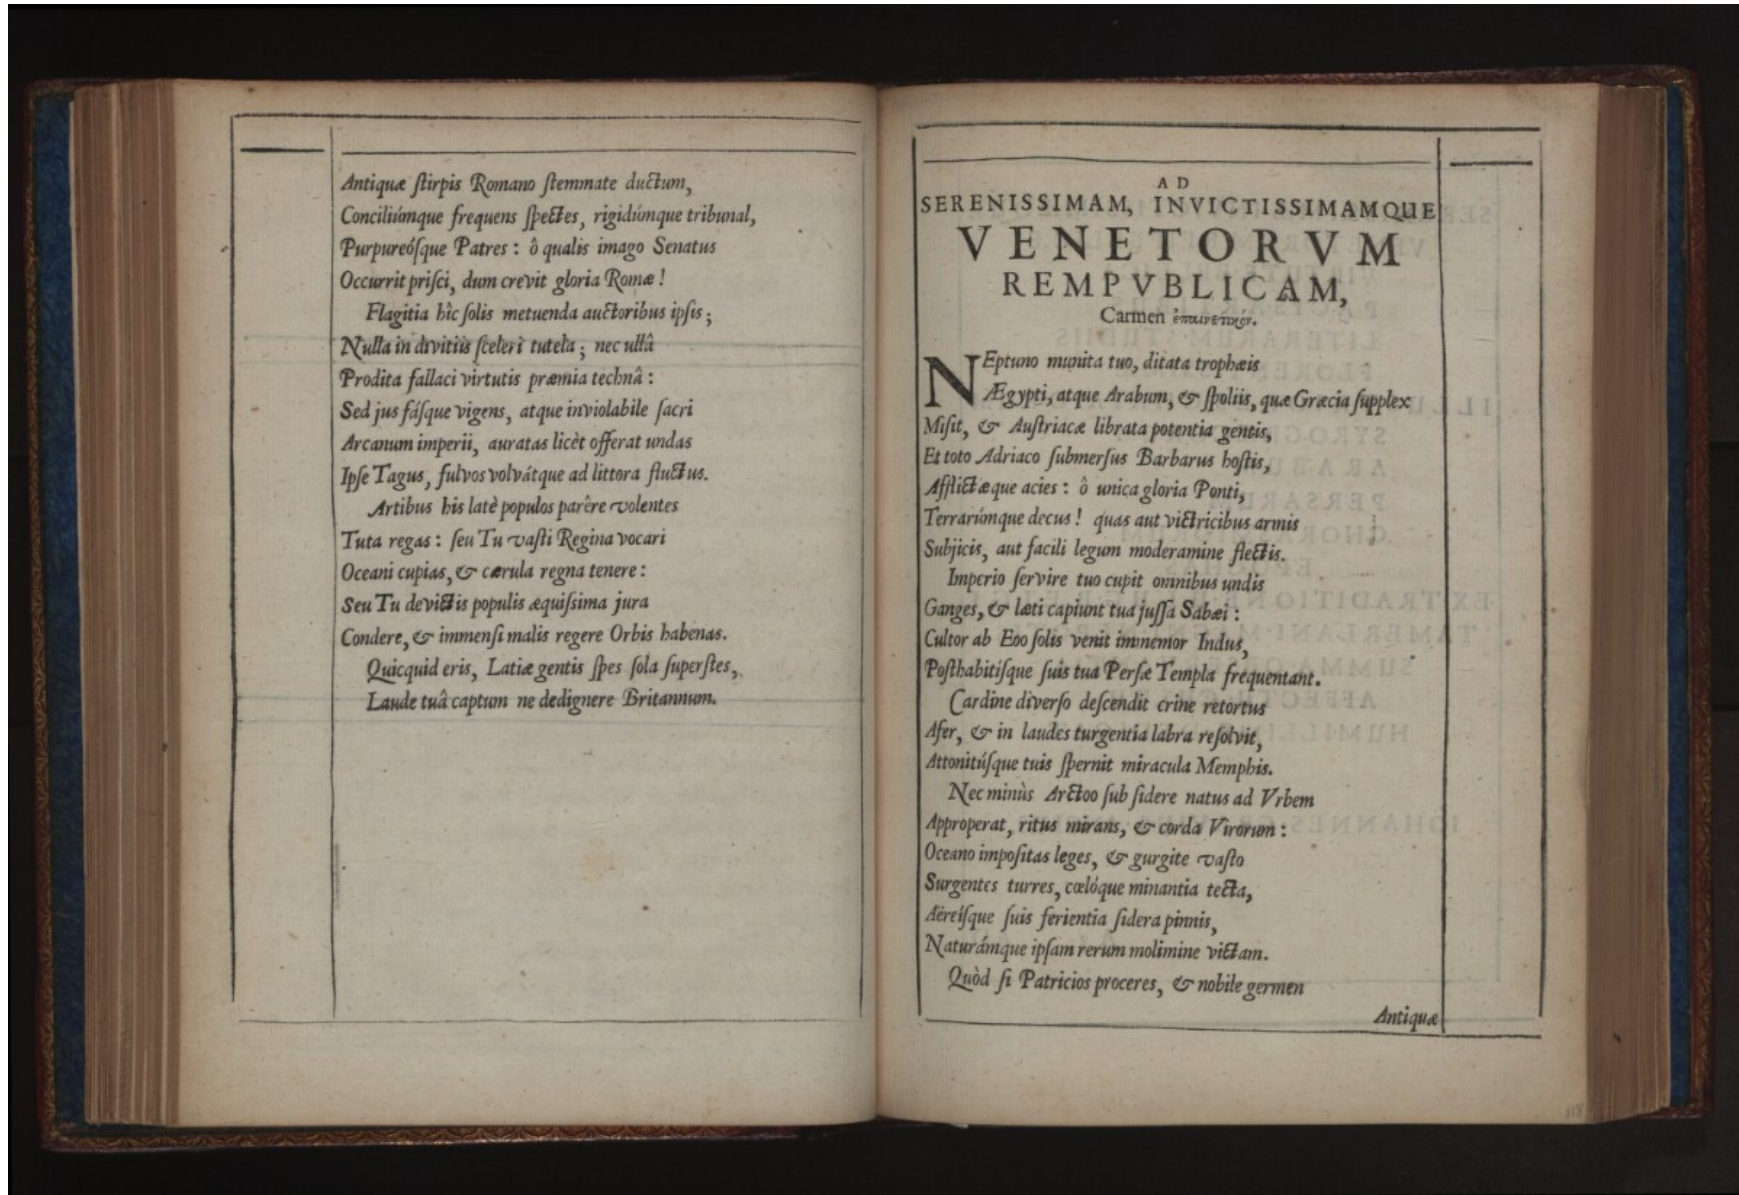 Antiquæ ſtirpis Romano ſtemmate ductum,
Conciliúmque frequens ſpectes, rigidúmque tribunal,
Purpureóſque Patres : ô qualis imago Senatus
Occurrit priſci, dum crevit gloria Romæ !
Flagitia hîc ſolis metuenda auctoribus ipſis ;
Nulla in divitiis ſceleri tutela ; nec ullâ
Prodita fallaci virtutis præmia technâ :
Sed jus fáſque vigens, atque inviolabile ſacri
Arcanum imperii, auratas licèt offerat undas
Ipſe Tagus, fulvos volvátque ad littora fluctus.
Artibus his latè populos parêre volentes
Tuta regas : ſeu Tu vaſti Regina vocari
Oceani cupias, & cærula regna tenere :
Seu Tu devictis populis æquiſsima jura
Condere, & immenſi malis regere Orbis habenas.
Quicquid eris, Latiæ gentis ſpes ſola ſuperſtes,
Laude tuâ captum ne dedignere Britannum.
AD
SERENISSIMAM, INVICTISSIMAMQUE
VENETORVM
REMPVBLICAM,
Carmen ἐπαινετικόν.
NEptuno munita tuo, ditata trophæis
Ægypti, atque Arabum, & ſpoliis, quæ Græcia ſupplex
Miſit, & Auſtriacæ librata potentia gentis,
Et toto Adriaco ſubmerſus Barbarus hoſtis,
Afflictæque acies : ô unica gloria Ponti,
Terrarúmque decus ! quas aut victricibus armis
Subjicis, aut facili legum moderamine flectis.
Imperio ſervire tuo cupit omnibus undis
Ganges, & læti capiunt tua juſſa Sabæi :
Cultor ab Eoo ſolis venit immemor Indus,
Poſthabitiſque ſuis tua Perſæ Templa frequentant.
Cardine diverſo deſcendit crine retortus
Afer, & in laudes turgentia labra reſolvit,
Attonitúſque tuis ſpernit miracula Memphis.
Nec minùs Arctoo ſub ſidere natus ad Vrbem
Approperat, ritus mirans, & corda Virorum :
Oceano impoſitas leges, & gurgite vaſto
Surgentes turres, cœlóque minantia tecta,
Aëreíſque ſuis ferientia ſidera pinnis,
Naturámque ipſam rerum molimine victam.
Quòd ſi Patricios proceres, & nobile germen
Antiquæ
118